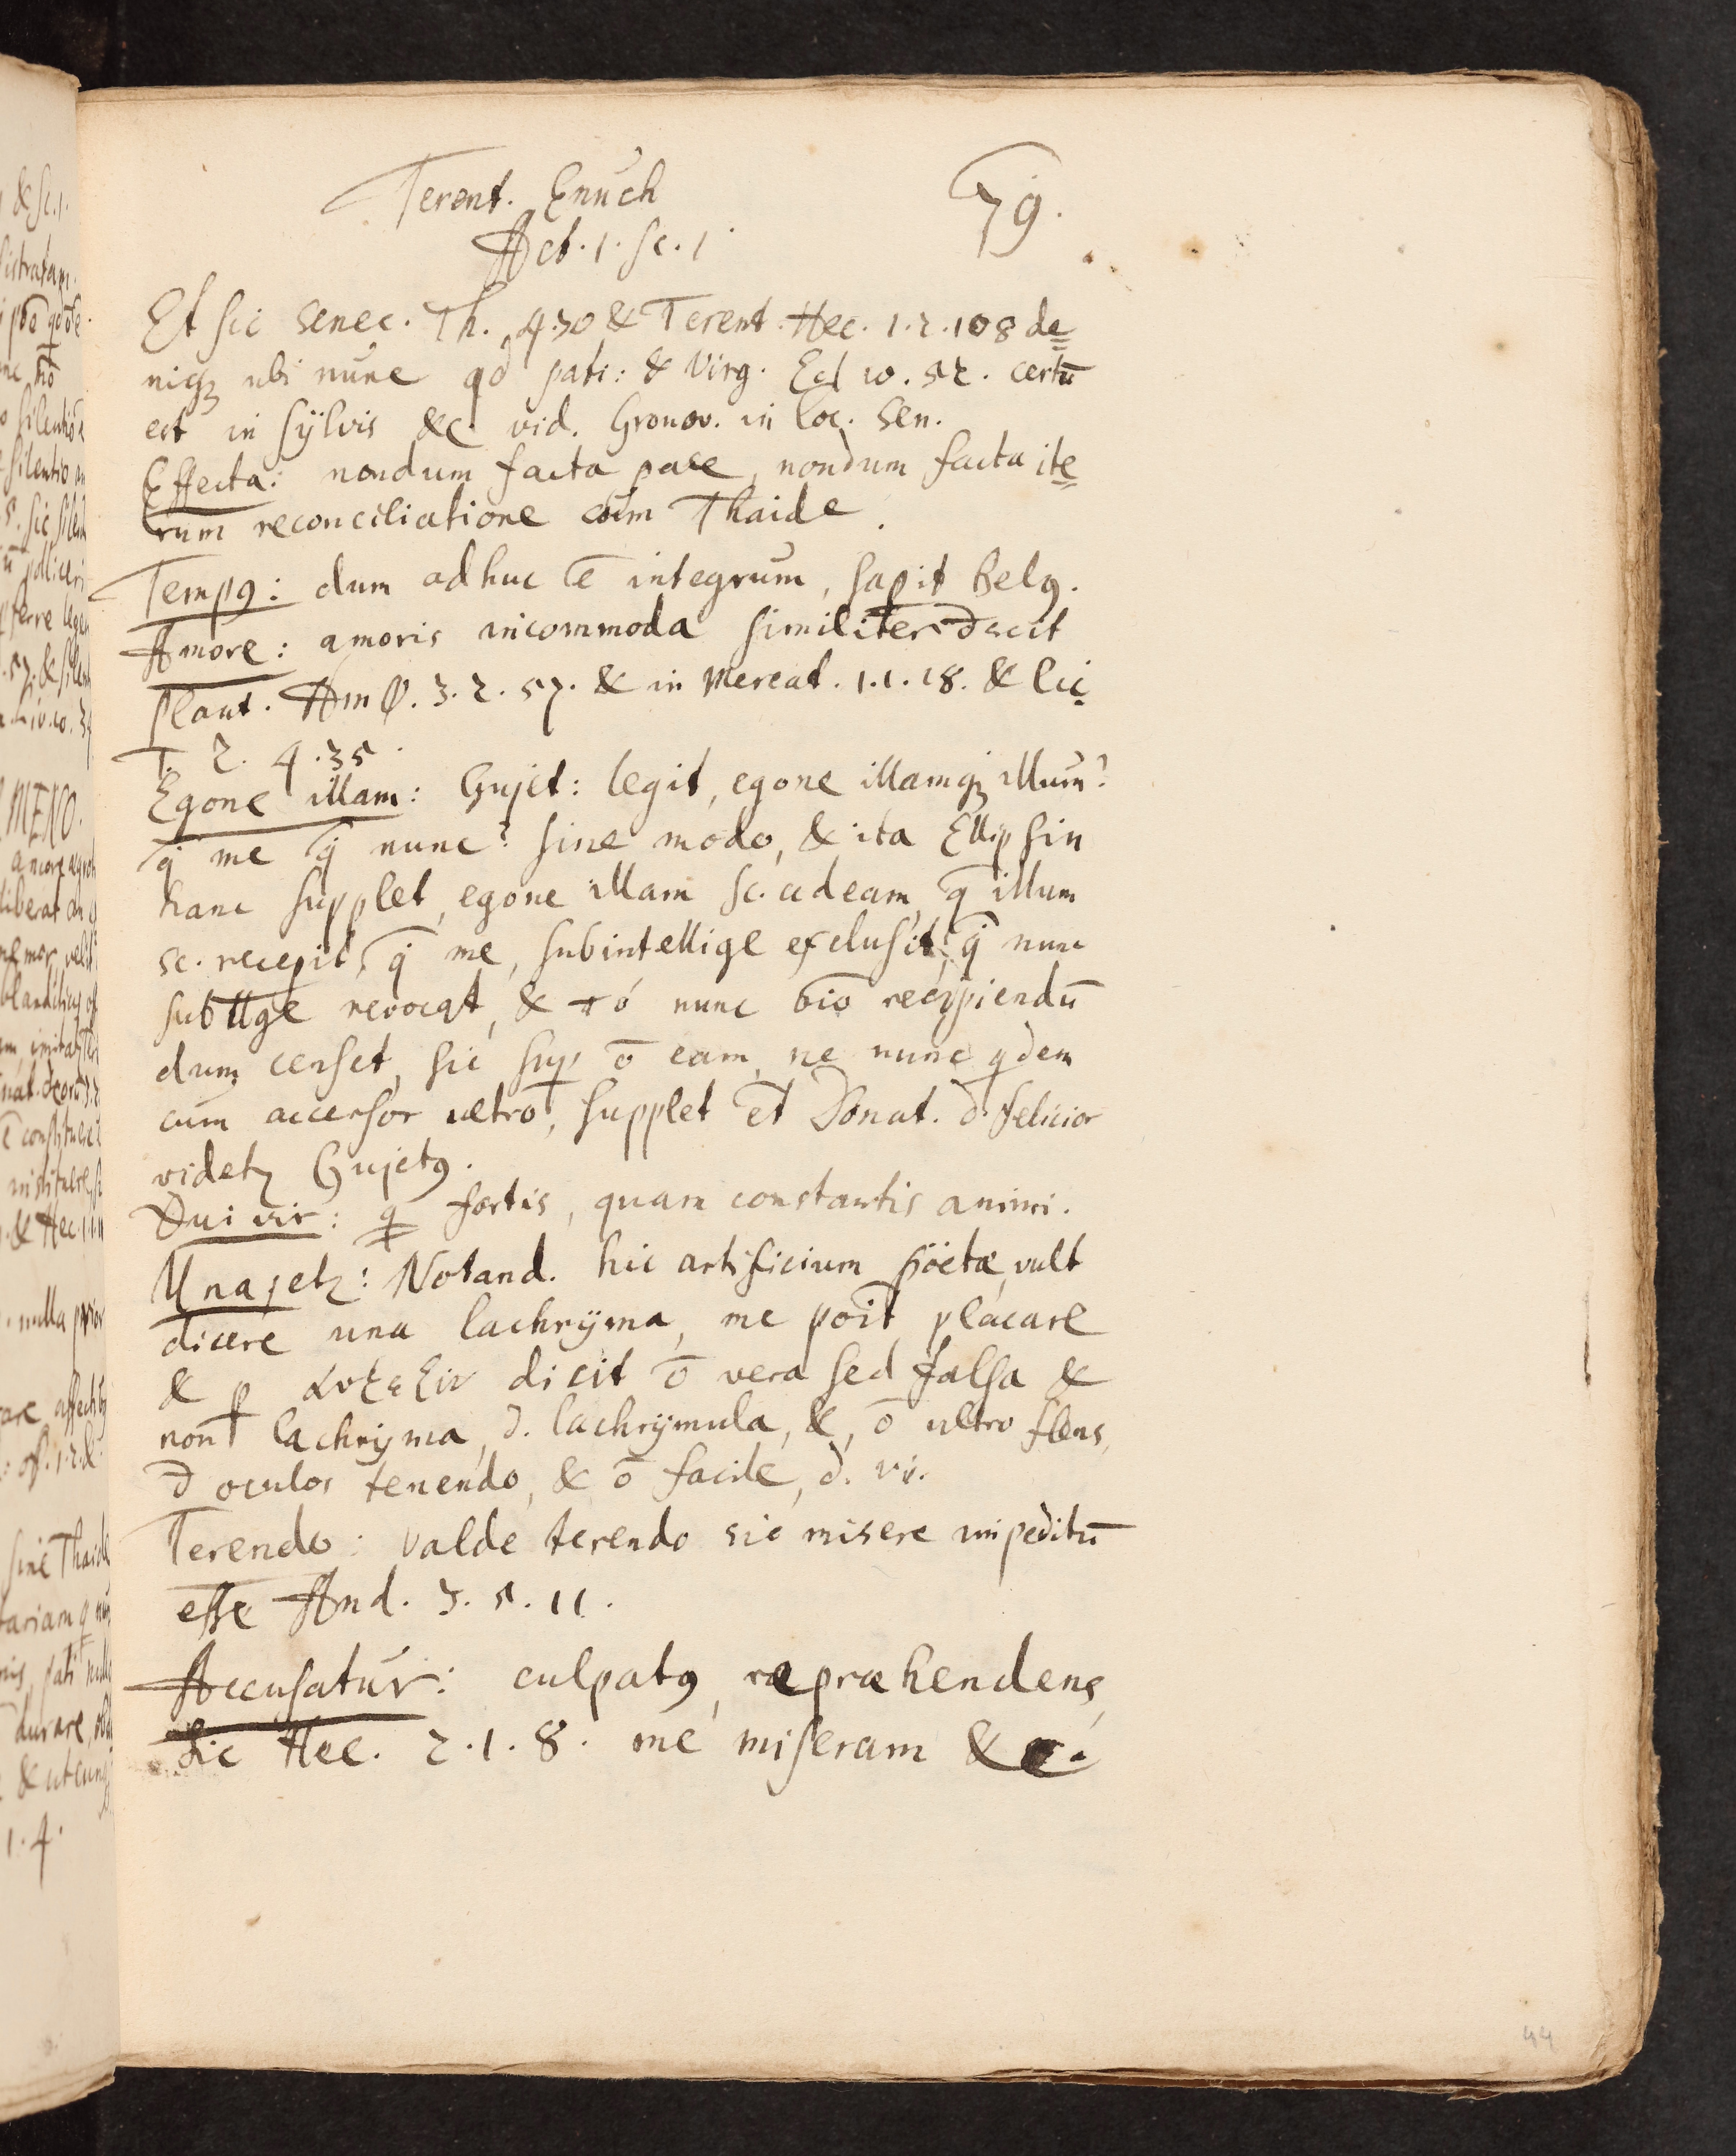 Terent. Enuch 79.
Act. 1. sc. 1
Et sic Senec. Th. 470 & Terent. Hec. 1.2.108 de=
niq; ubi nunc qd pati: & Virg. Ecl 10. 52. certū
est in sÿlvis &c vid. Gronov. in loc. Sen.
Effecta: nondum facta pace, nondum facta ite=
rum reconciliatione cum Thaide.
Temp9: dum adhuc ē integrum, sapit Belg.
Amore: amoris incommoda similiter
Plaut. Amφ. 3.2.57. & in Mercat. 1.1.18. & Cic.
T. 2. 4.35.
Egone illam: Gujet: legit, egone illamq; illum?
q̄ me q̄ nunc? sine modo, & ita Ellipsin
hanc supplet, egone illam sc. adeam, q̄ illum
sc. recepit, q̄ me, subintellige exclusit, q̄ nunc
subllge revocat, & τó nunc recipiendū
dum censet, sic sup ō eam, ne nunc qdem
cum accersor ultrō, supplet ēt Donat. ∂ felicior
videtz Gujet9.
Qui vir: q̄ fortis, quam constantis animi.
Una jetz: Notand. hic artificium pöetæ, vult
dicere una lachrÿma, me poīt placare
& p dicit ō vera sed falsa &
non lachrÿma, ∂. lachrÿmula, &, ō ultro flens,
∂ oculos tenendo, & ō facile, ∂. vi.
Terendo: valde terendo sic misere impeditū
esse And. 3. 5. 11.
Accusatur: culpat9, repræhendens,
Sic Hec. 2.1.8. me miseram &c.
44